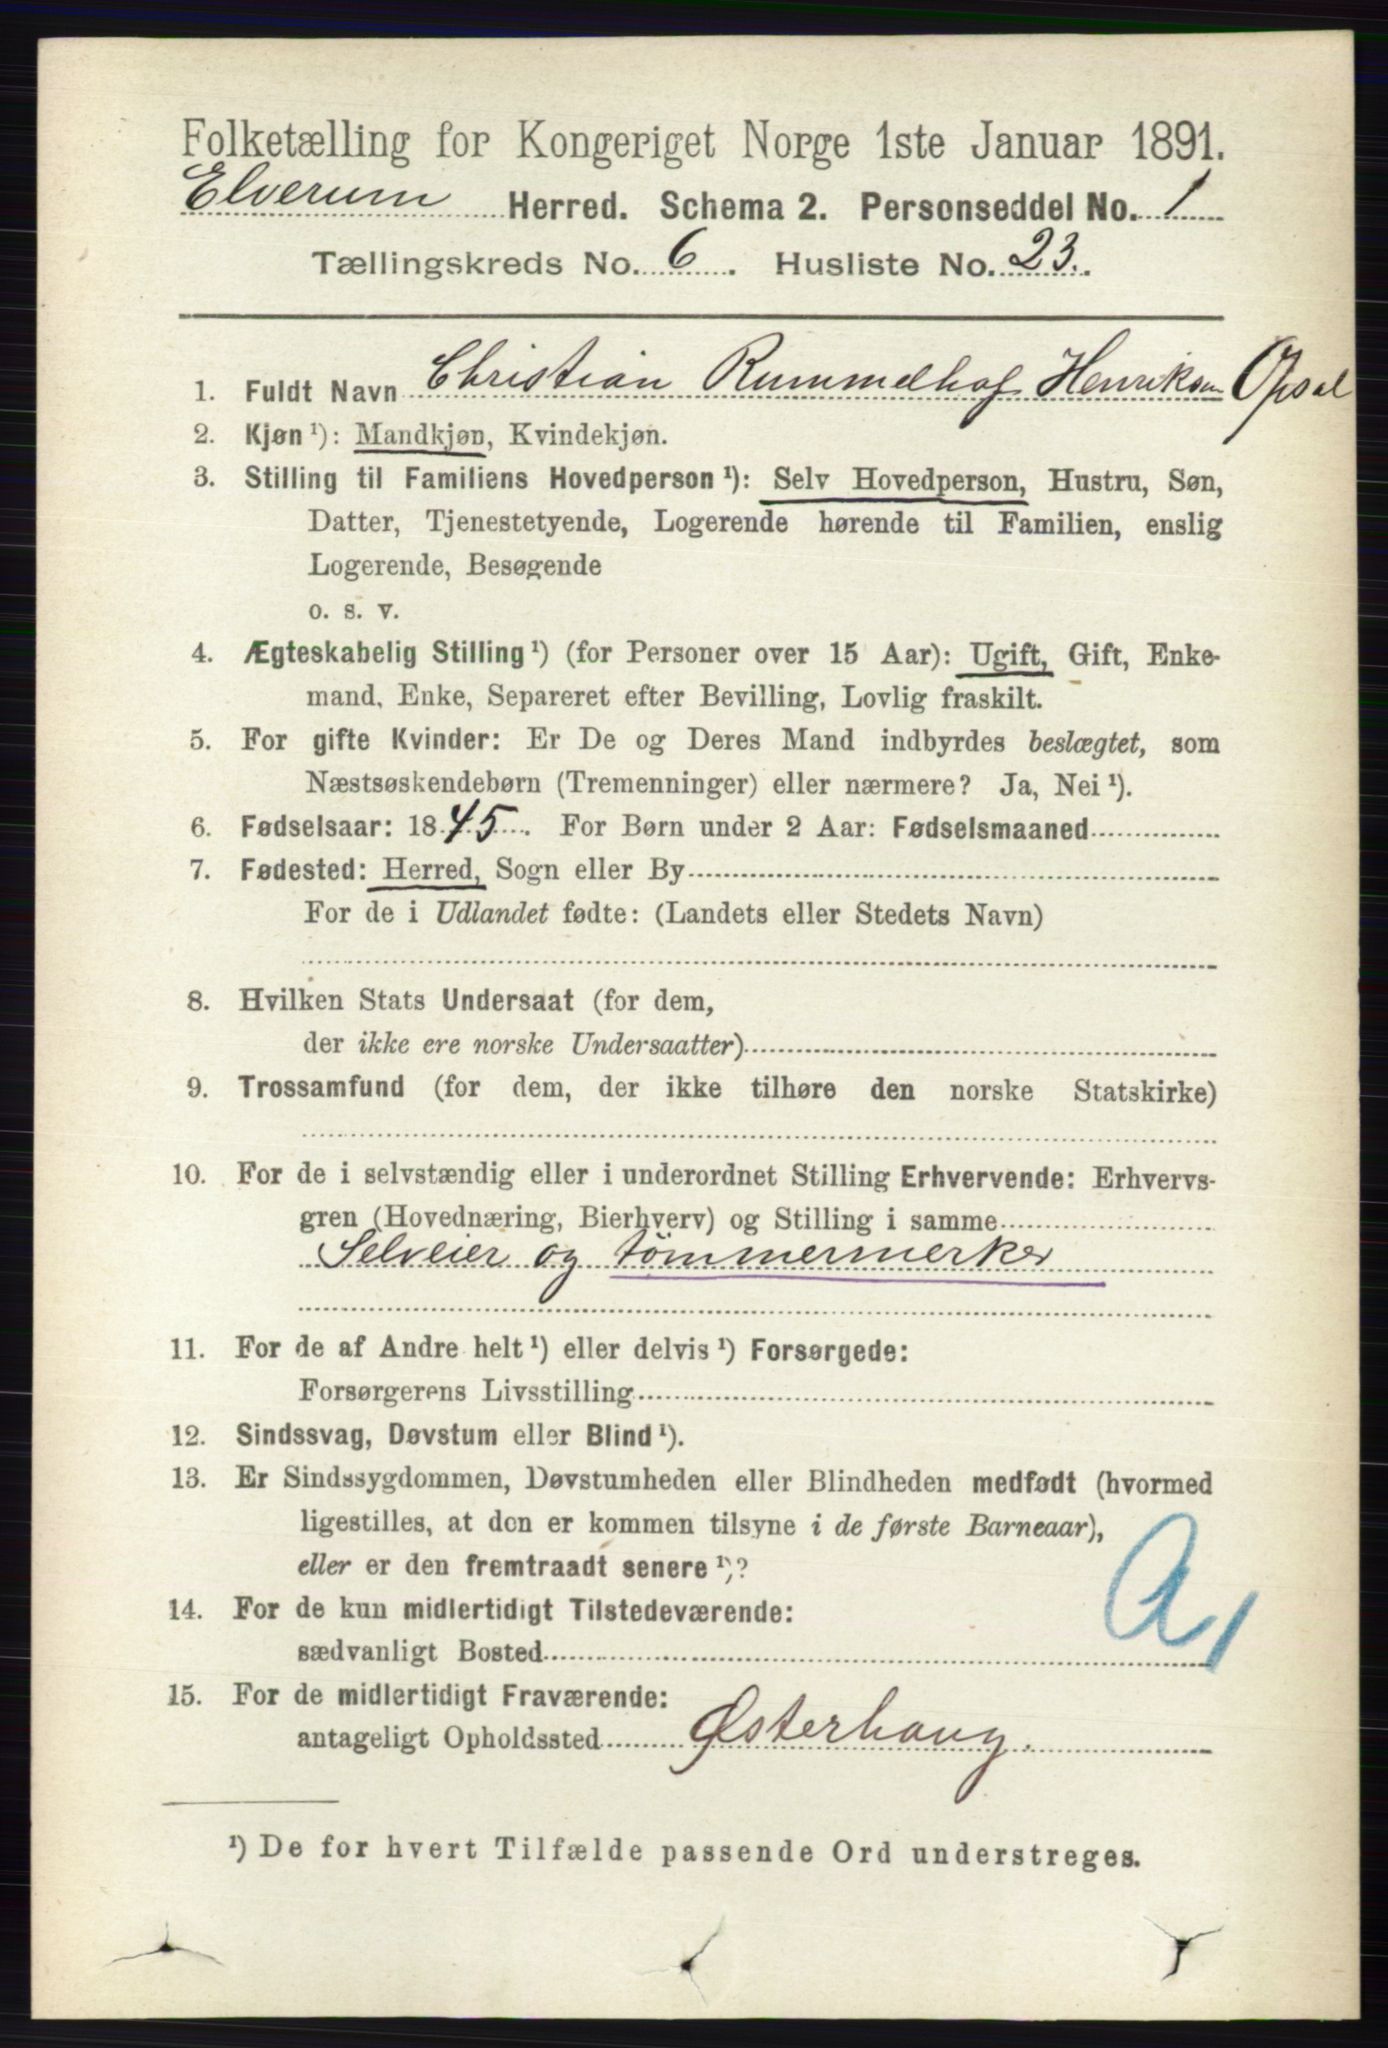 Folketælling for Kongeriget Norge 1ste Januar 1891.
Elverum Herred. Schema 2. Personseddel No. 1
Tællingskreds No. 6. Husliste No. 23.
1. Fuldt Navn Christian Rummelhof Henriksen Opsal
2. Kjøn ¹): Mandkjøn, Kvindekjøn.
3. Stilling til Familiens Hovedperson ¹): Selv Hovedperson, Hustru, Søn,
Datter, Tjenestetyende, Logerende hørende til Familien, enslig
Logerende, Besøgende
o. s. v.
4. Ægteskabelig Stilling ¹) (for Personer over 15 Aar): Ugift, Gift, Enke-
mand, Enke, Separeret efter Bevilling, Lovlig fraskilt.
5. For gifte Kvinder: Er De og Deres Mand indbyrdes beslægtet, som
Næstsøskendebørn (Tremenninger) eller nærmere? Ja, Nei ¹).
6. Fødselsaar: 1845. For Børn under 2 Aar: Fødselsmaaned
7. Fødested: Herred, Sogn eller By
For de i Udlandet fødte: (Landets eller Stedets Navn)
8. Hvilken Stats Undersaat (for dem,
der ikke ere norske Undersaatter)
9. Trossamfund (for dem, der ikke tilhøre den norske Statskirke)
10. For de i selvstændig eller i underordnet Stilling Erhvervende: Erhvervs-
gren (Hovednæring, Bierhverv) og Stilling i samme
Selveier og tömmermerker
11. For de af Andre helt ¹) eller delvis ¹) Forsørgede:
Forsørgerens Livsstilling
12. Sindssvag, Døvstum eller Blind ¹).
13. Er Sindssygdommen, Døvstumheden eller Blindheden medfødt (hvormed
ligestilles, at den er kommen tilsyne i de første Barneaar),
eller er den fremtraadt senere ¹)?
14. For de kun midlertidigt Tilstedeværende:
sædvanligt Bosted
A1
15. For de midlertidigt Fraværende:
antageligt Opholdssted Østerhaug.
¹) De for hvert Tilfælde passende Ord understreges.